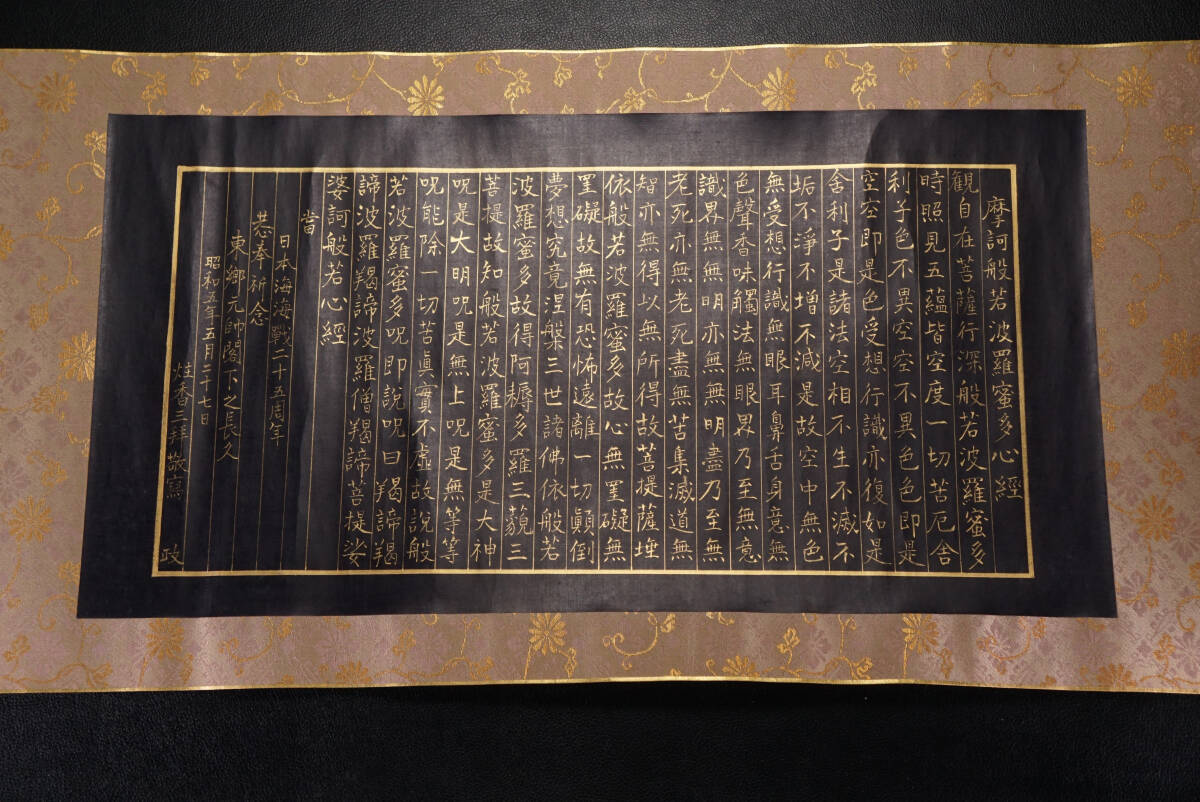 摩訶般若波羅蜜多心經
観自在菩薩行深般若波羅蜜多
時照見五蘊皆空度一切苦厄舍
利子色不異空空不異色色即是
空空即是色受想行識亦復如是
舍利子是諸法空相不生不滅不
垢不淨不增不減是故空中無色
無受想行識無眼耳鼻舌身意無
色聲香味觸法無眼界乃至無意
識界無無明亦無無明盡乃至無
老死亦無老死盡無苦集滅道無
智亦無得以無所得故菩提薩埵
依般若波羅蜜多故心無罣礙無
罣礙故無有恐怖遠離一切顚倒
夢想究竟涅槃三世諸佛依般若
波羅蜜多故得阿耨多羅三藐三
菩提故知般若波羅蜜多是大神
呪是大明呪是無上呪是無等等
呪能除一切苦眞實不虛故說般
若波羅蜜多呪即說呪曰羯諦羯
諦波羅羯諦波羅僧羯諦菩提娑
婆訶般若心經
當
日本海海戰二十五周年
恭奉祈念
東鄉元帥閣下之長久
昭和五年五月二十七日
炷香三拜敬寫 政